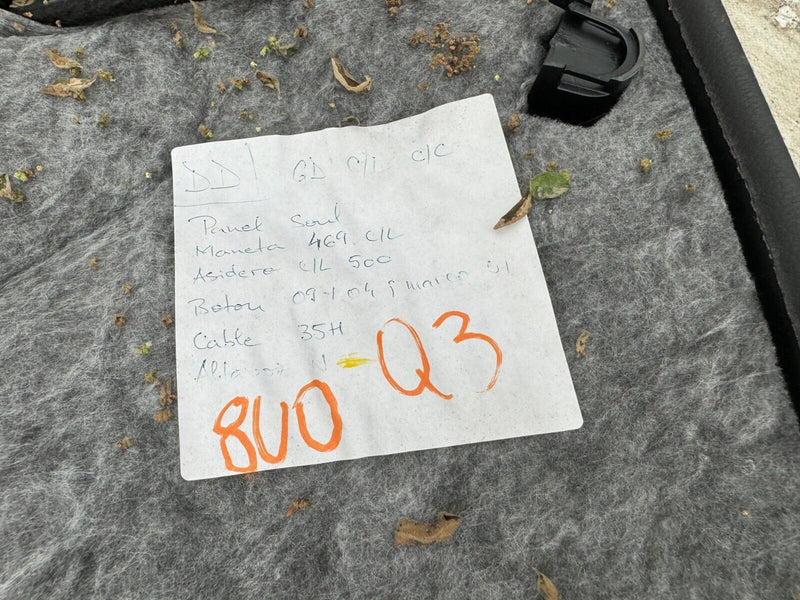 DD GD C/i C/C
Panel Soul
Maneta 469 C/L
Asidero C/L 500
Boton 09-104 y marco 51
Cable 35H
N
- Q3
8U0